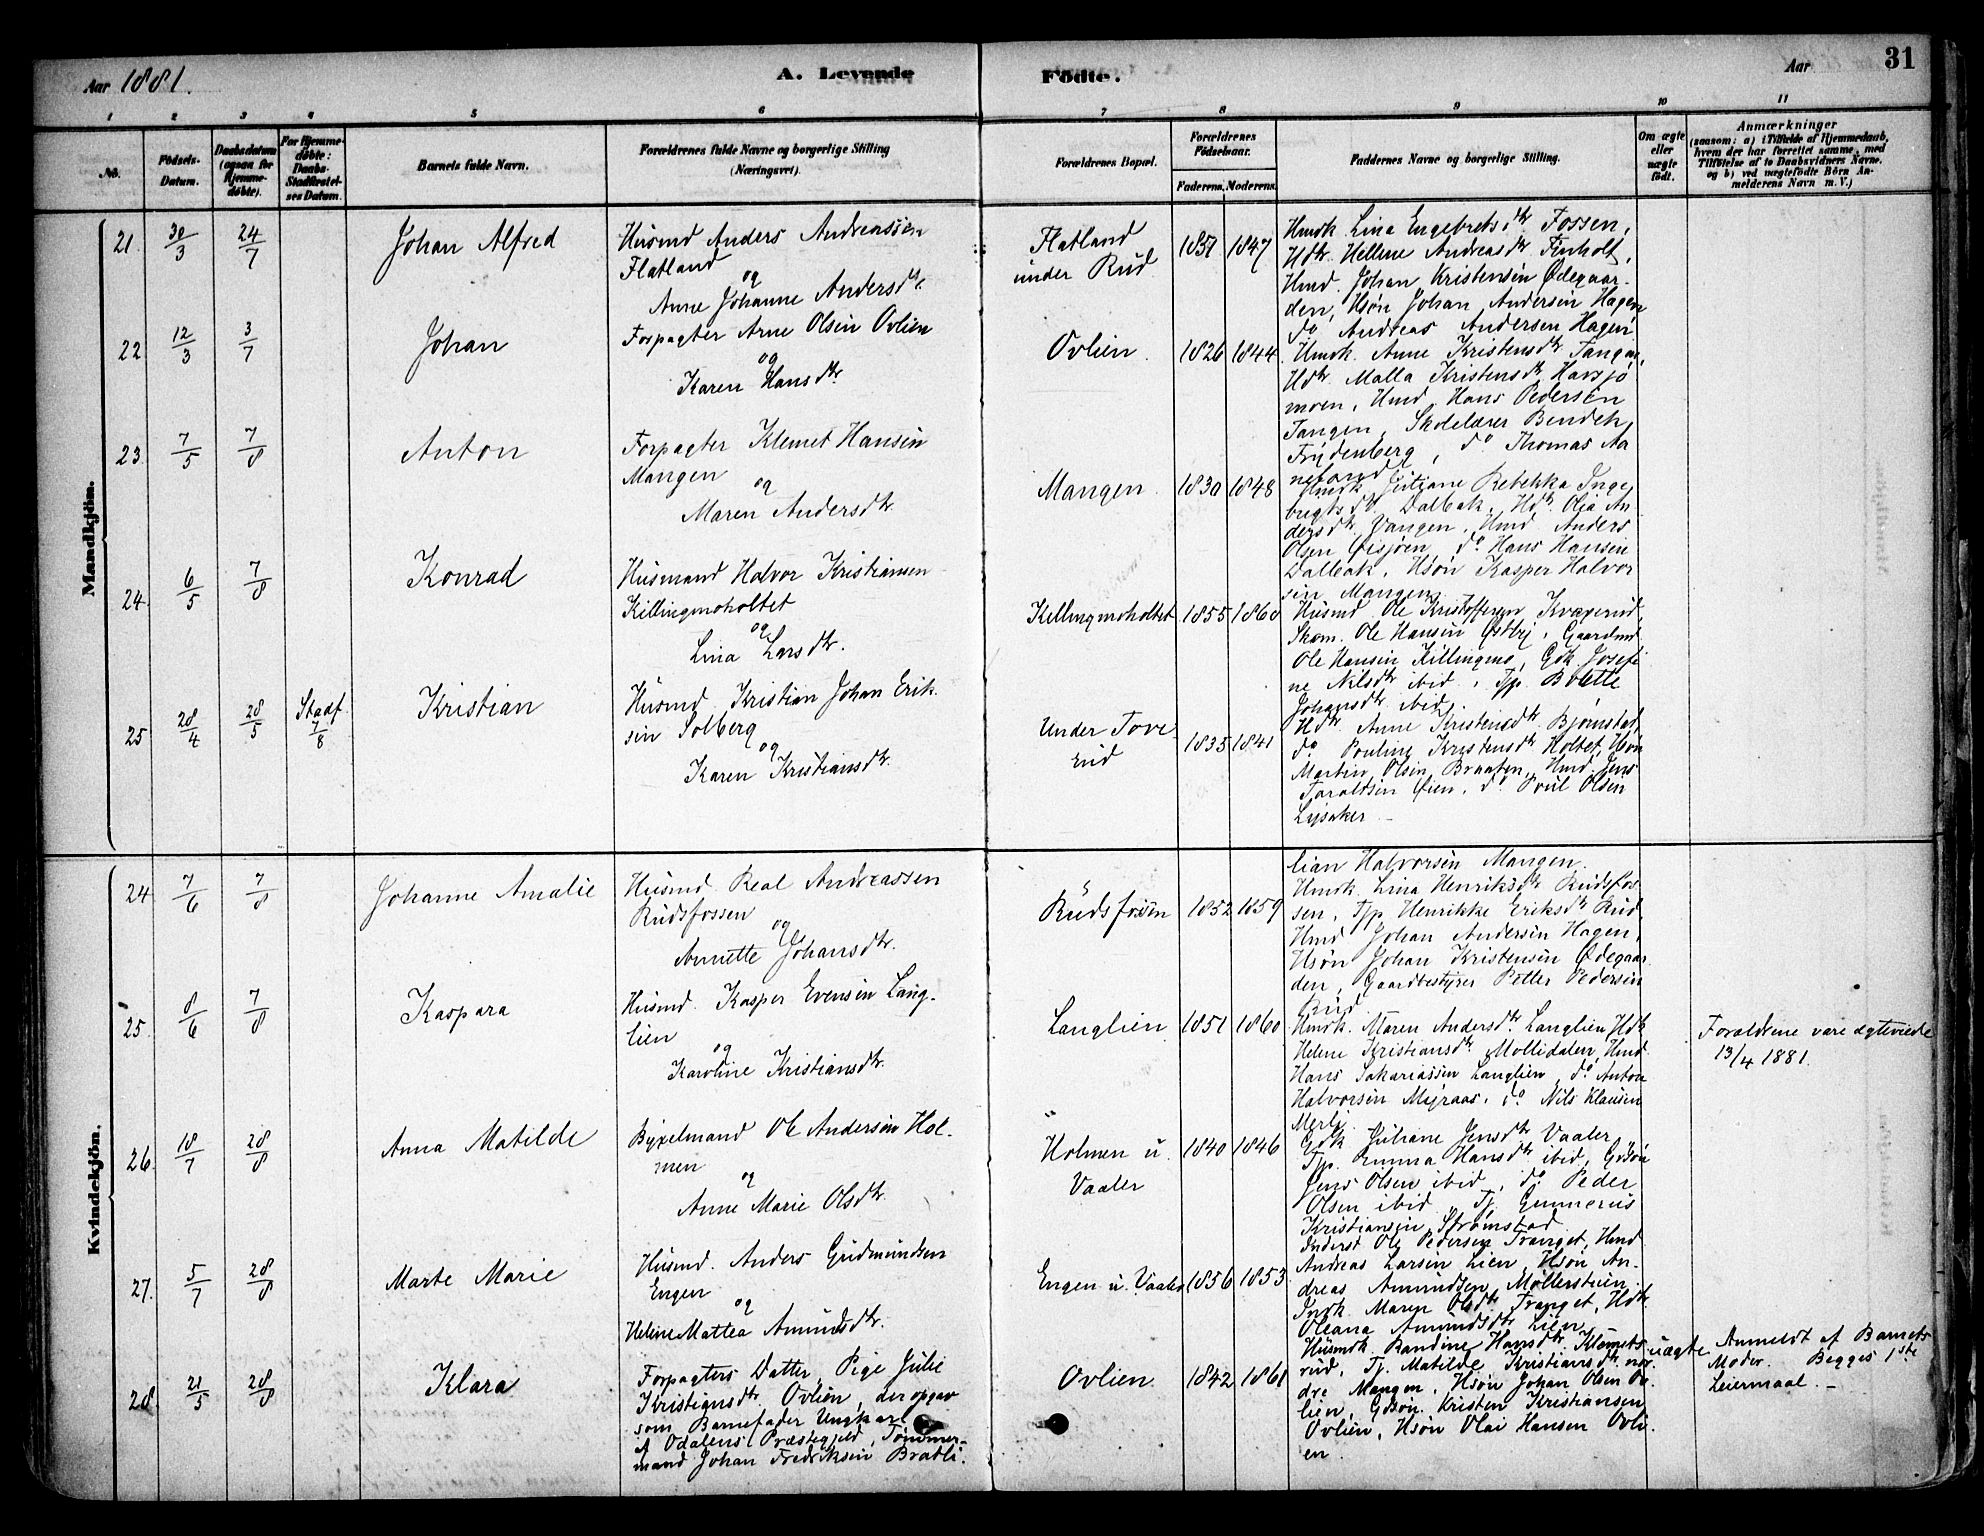 Aar 1881.
A. Levende
Födte.
Aar
31
1 2 3 4 5 6 7 8 9 10 11
No.
Födsels-
Datum.
Daabsdatum
(ogsaa for
Hjemme-
döbte).
For Hjemme-
döbte:
Daabs-
Stadfæstel-
ses Datum.
Barnets fulde Navn.
Forældrenes fulde Navne og borgerlige Stilling
(Næringsvei).
Forældrenes Bopæl.
Forældrenes
Födselsaar.
Faderens. Moderens.
Faddernes Navne og borgerlige Stilling.
Om ægte
eller
uægte
födt.
Anmærkninger
(saasom: a) i Tilfælde af Hjemmedaab,
hvem der har forrettet samme, med
Tilföielse af to Daabsvidners Navne,
og b) ved uægtefödte Börn An-
melderens Navn m. V.)
Mandkjön.
21 30/3 24/7
Johan Alfred
Husmd Anders Andreassen
Flatland
og
Anne Johanne Andersdtr.
Flatland
under Rud
1851 1847
Hmdk Lina Engebretsdtr Fossen,
Hdtr. Hellene Andreasdtr Finholt,
Hmd. Johan Kristensen Ødegaar-
den, Hsøn Johan Andersen Hagen
do Andreas Andersen Hagen
22 12/3 3/7
Johan
Forpagter Arne Olsen Ovlien
og
Karen Hansdtr.
Ovlien.
1826 1844
Hmdk. Anne Kristensdtr Tangen,
Hdtr. Malla Kristensdtr Havsjø
moen, Hmd Hans Pedersen
Tangen, Skolelærer Bendek
Frydenberg, do Thomas Aa
nebond
23 7/5 7/8
Anton
Forpagter Klemet Hansen
Mangen
og
Maren Andersdtr.
Mangen.
1830 1848
Hmdk Justiane Rebekka Inge
brigtsdtr. Dalbak, Hdtr. Olea An
dersdtr Vangen, Hmd Anders
Olsen Øisjøen, do Hans Hansen
Dalbak, Hsøn Kasper Halvor
sen Mangen.
24 6/5 7/8
Konrad
Husmand Halvor Kristiansen
Killingmoholtet
og
Lina Larsdtr.
Killingmoholtet
1855 1860
Husmd Ole Kristoffersen Kvæverud,
Skom. Ole Hansen Østby, Gaardmd
Ole Hansen Killingmo, Gdk. Josefi
ne Nilsdtr ibid, Tjp. Bolette
Johansdtr ibid.
25 28/4 28/5 Stadf. 7/8
Kristian
Husmd Kristian Johan Erik-
sen Solberg
og
Karen Kristiansdtr.
Under Tove
rud
1835 1841
Hdtr. Anne Kristensdtr Bjørnstad,
do Pouline Kristensdtr Holtet, Hsøn
Martin Olsen Braaten, Hmd. Jens
Taraldsen Øien, do Poul Olsen
Lysaker.
Kvindekjön.
24 7/6 7/8
Johanne Amalie
Husmd Real Andreassen
Rudsfossen
og
Annette Johansdtr.
Rudsfossen
1852 1859
lian Halvorsen Mangen.
Hmdk. Lina Henriksdtr Rudsfos-
sen, Tjp Henrikke Eriksdtr Rud
Hmd Johan Andersen Hagen,
Hsøn Johan Kristensen Ødegaar
den, Gaardbestyrer Petter Pedersen
Rud.
25 8/6 7/8
Kaspara
Husmd. Kasper Evensen Lang-
lien
og
Karoline Kristiansdtr.
Langlien
1851 1860
Hmdk. Maren Andersdtr. Langlien, Hdtr
Helene Kristiansdtr Mollidalen, Hmd
Hans Sakariassen Langlien, do Anton
Halvorsen Myraas, do Nils Klausen
Merli.
Forældrene vare ægteviede
13/4 1881.
26. 18/7 28/8
Anna Matilde
Bygselmand Ole Andersen Hol-
men
og
Anne Marie Olsdtr.
Holmen u.
Vaaler
1840 1846
Gdk Juliane Jensdtr Vaaler
Tjp. Emma Hansdtr ibid, Gdsøn
Jens Olsen ibid, do Peder
Olsen ibid, Tj. Gunnerius
Kristiansen Strømstad
27. 5/7 28/8
Marte Marie
Husmd. Anders Gudmundsen
Engen
og
Helene Mattea Amundsdtr.
Engen u. Vaaler
1856 1853
Inderst Ole Pedersen Tranget, Hmd
Andreas Larsen Lien, Hsøn An-
dreas Amundsen Møllerstuen.
Indk. Maren Olsdtr. Tranget, Hdtr.
Oleana Amundsdtr Lien
28. 21/5 28/8
Klara
Forpagters Datter, Pige Julie
Kristiansdtr. Ovlien, der opgav
som Barnefader Ungkarl
af Odalens Præstegjeld, Tømmer-
mand Johan Fredriksen Bradli.
Ovlien.
1842 1861
Husmdk. Randine Hansdtr. Klemets
rud, Tj. Matilde Kristiansdtr. nor
dre Mangen, Hsøn Johan Olsen Ov-
lien, Gdsøn. Kristen Kristiansen
Ovlien, Hsøn Olai Hansen Ovli-
en.
uægte
Anmeldt af Barnets
Moder. Begges 1ste
Leiermaal.